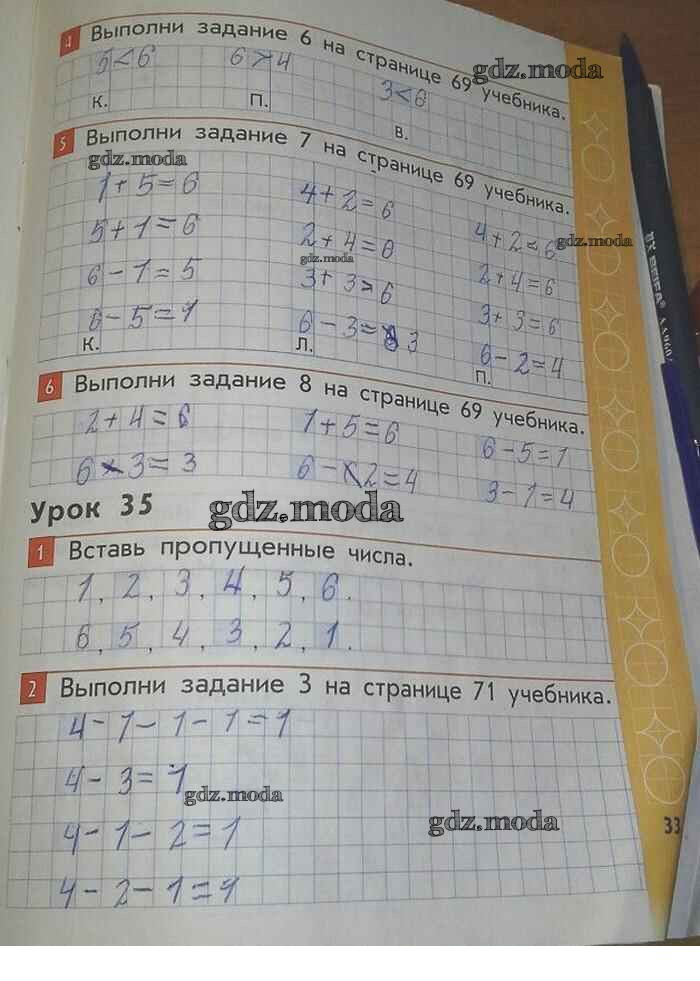 4 Выполни задание 6 на странице 69 учебника.
5<6 6>4 3<6
К. П. В.
5 Выполни задание 7 на странице 69 учебника.
1+5=6 4+2=6 4+2=6
5+1=6 2+4=6 2+4=6
6-1=5 3+3=6 3+3=6
6-5=1 6-3=3 6-2=4
К. Л. П.
6 Выполни задание 8 на странице 69 учебника.
2+4=6 1+5=6 6-5=1
6-3=3 6-2=4 3-1=4
Урок 35
1 Вставь пропущенные числа.
1, 2, 3, 4, 5, 6.
6, 5, 4, 3, 2, 1.
2 Выполни задание 3 на странице 71 учебника.
4-1-1-1=1
4-3=1
4-1-2=1
4-2-1=1
33
gdz.moda
gdz.moda
gdz.moda
gdz.moda
gdz.moda
gdz.moda
gdz.moda